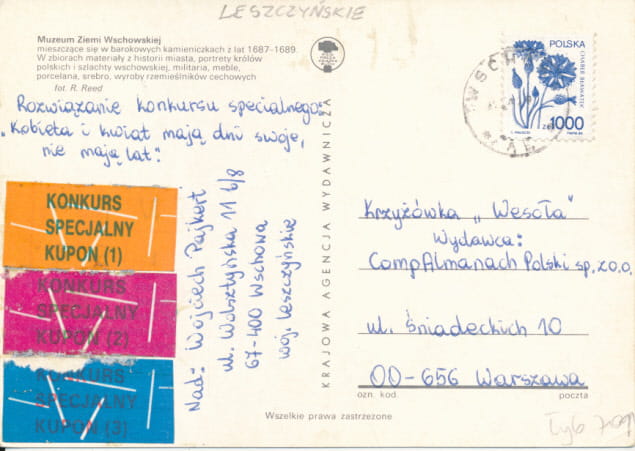 LESZCZYŃSKIE
Muzeum Ziemi Wschowskiej
mieszczące się w barokowych kamieniczkach z lat 1687-1689.
W zbiorach materiały z historii miasta, portrety królów
polskich i szlachty wschowskiej, militaria, meble,
porcelana, srebro, wyroby rzemieślników cechowych
fot. R. Reed
Rozwiązanie konkursu specjalnego:
"Kobieta i kwiat mają dni swoje,
nie mają lat".
KONKURS
SPECJALNY
KUPON (1)
KONKURS
SPECJALNY
KUPON (2)
KONKURS
SPECJALNY
KUPON (3)
Nad: Wojciech Pajkert
ul. Wolsztyńska 11 b/8
67-400 Wschowa
woj. leszczyńskie
KRAJOWA AGENCJA WYDAWNICZA
POLSKA
CHABER BŁAWATEK
ZŁ 1000
WSCHOWA
Krzyżówka „Wesoła"
Wydawca:
CompAlmanach Polski sp. z o.o.
ul. Śniadeckich 10
00-656 Warszawa
ozn. kod. poczta
Wszelkie prawa zastrzeżone